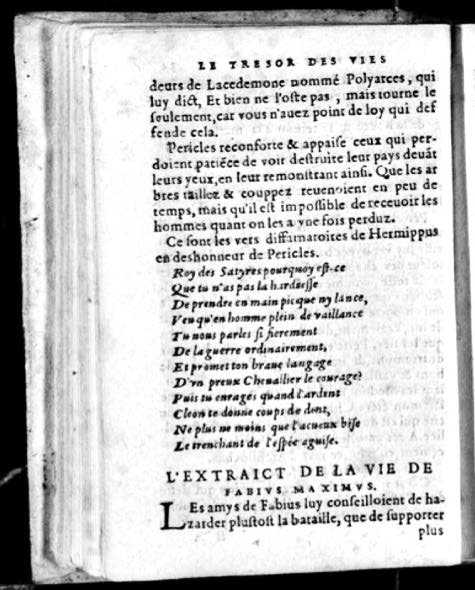 LE TRESOR DES VIES
deurs de Lacedemone nommé Polyarces, qui
luy dict, Et bien ne l'oste pas, mais tourne le
seulement, car vous n'auez point de loy qui def
fende cela.
Pericles reconforte & appaise ceux qui per-
doient patiẽce de voir destruire leur pays deuãt
leurs yeux, en leur remonstrant ainsi. Que les ar
bres taillez & couppez reuenoient en peu de
temps, mais qu'il est impossible de receuoir les
hommes quant on les a vne fois perduz.
Ce sont les vers diffamatoires de Hermippus
en deshonneur de Pericles.
Roy des Satyres pourquoy est-ce
Que tu n'as pas la hardiesse
De prendre en main picque ny lance,
Veu qu'en homme plein de vaillance
Tu nous parles si fierement
De la guerre ordinairement,
Et promet ton braue langage
D'vn preux Cheuallier le courage?
Puis tu enrages quand l'ardent
Cleon te donne coups de dent,
Ne plus ne moins que l'acueux bise
Le trenchant de l'espée aguise.
L'EXTRAICT DE LA VIE DE
FABIVS MAXIMVS.
LEs amys de Fabius luy conseilloient de ha-
zarder plustost la bataille, que de supporter
plus